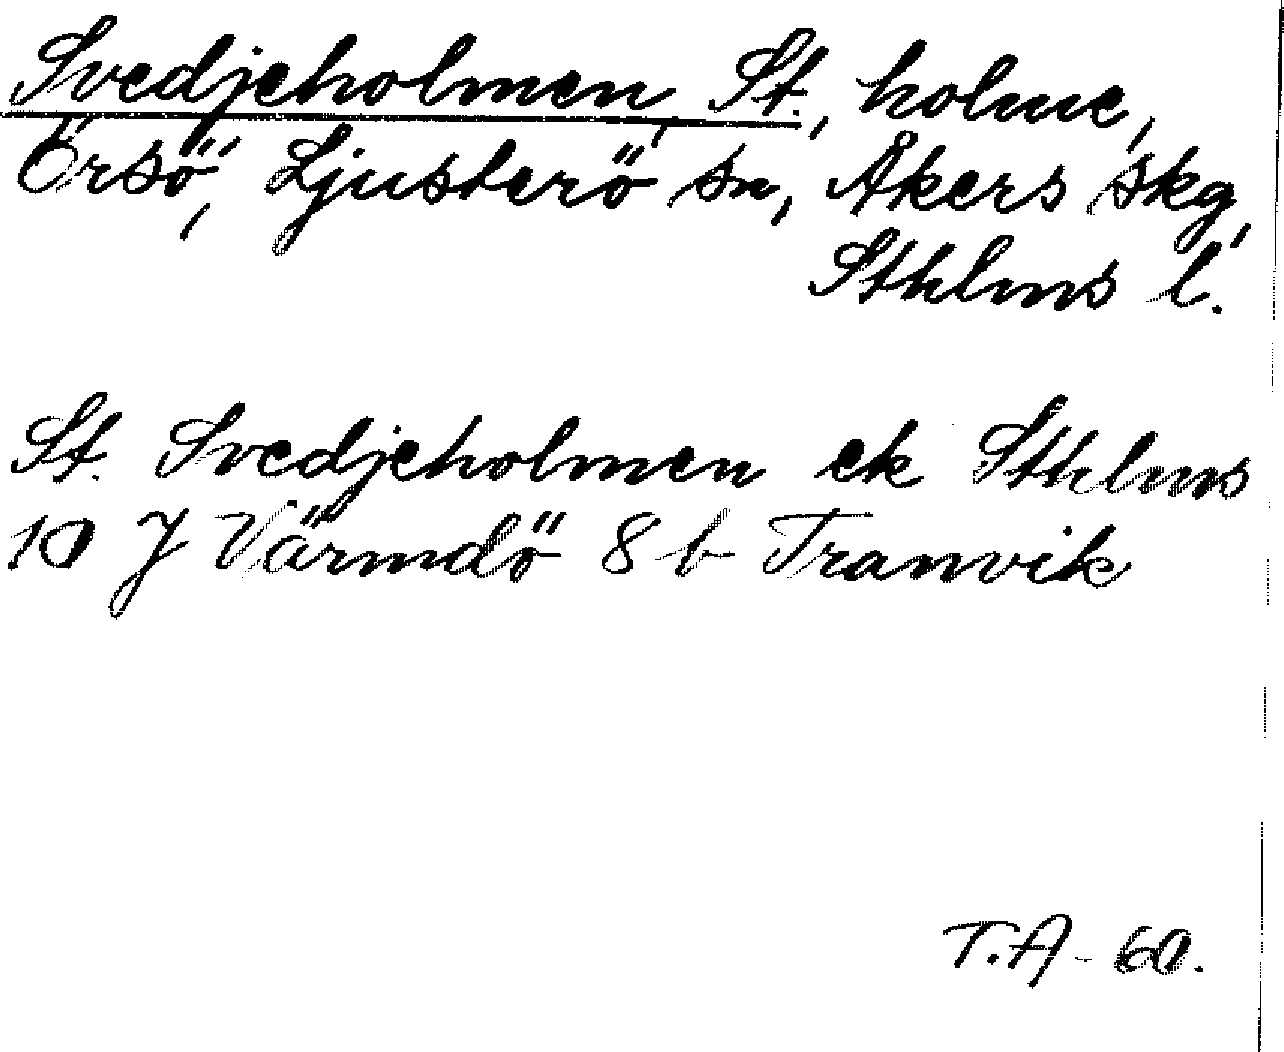 Svedjeholmen, St., holme,
Örsö, Ljusterö sn, Åkers skg,
Sthlms l.
St. Svedjeholmen ek Sthlms
10 J Värmdö 8 b Tranvik
T.A - 60.